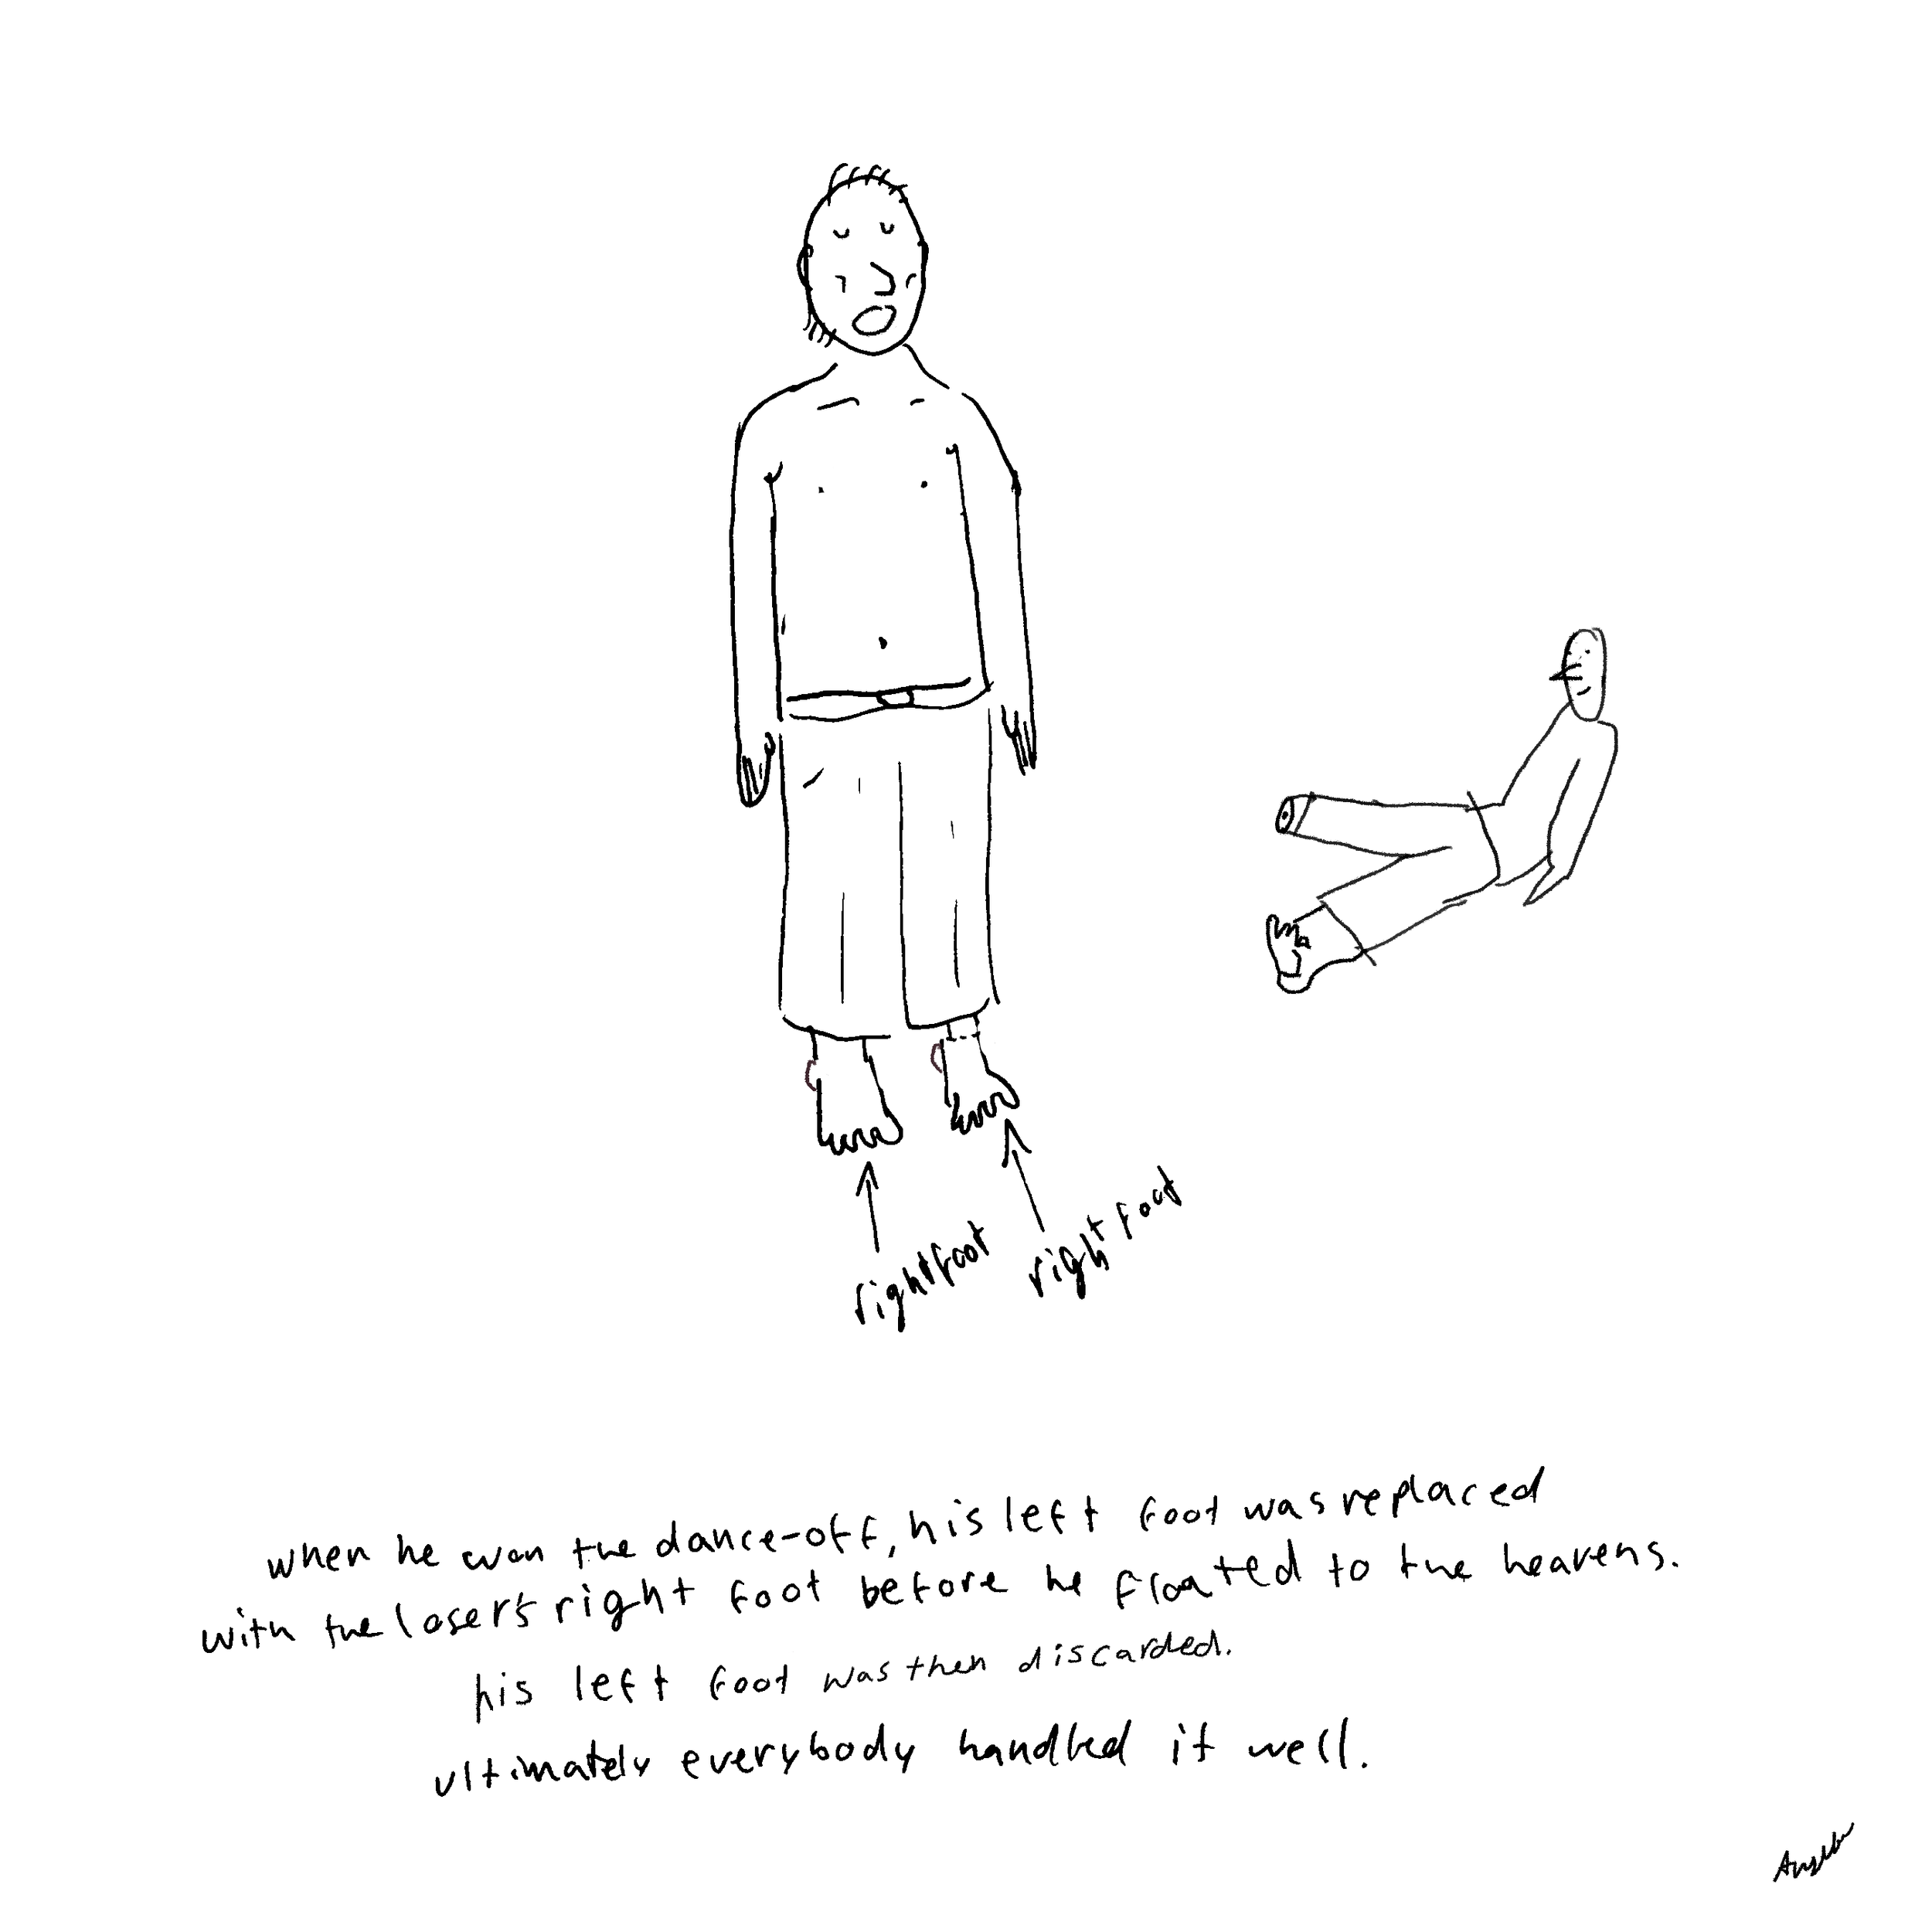 rightfoot
right foot
when he won the dance-off, his left foot was replaced
with the loser's right foot before he floated to the heavens.
his left foot was then discarded.
ultimately everybody handled it well.